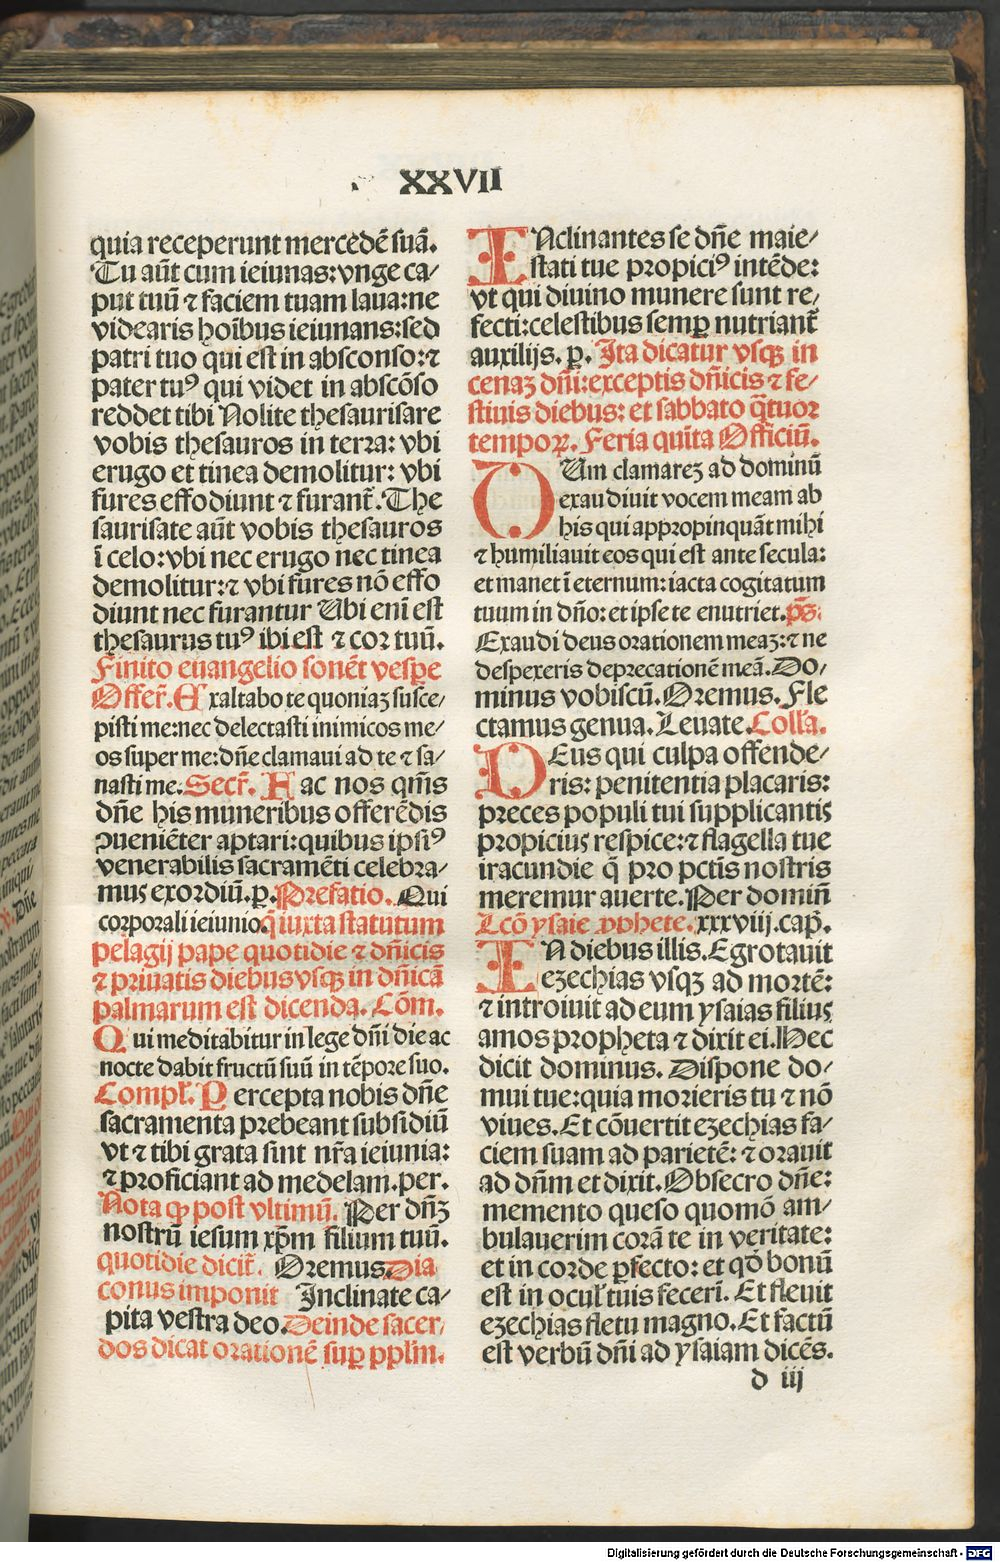 XXVII
quia receperunt mercedē suā.
Tu aūt cum ieiunas: vnge ca/
put tuū ⁊ faciem tuam laua: ne
videaris hoībus ieiunans: sed
patri tuo qui est in absconso: ⁊
pater tuꝰ qui videt in abscōso
reddet tibi Nolite thesaurisare
vobis thesauros in terra: vbi
erugo et tinea demolitur: vbi
fures effodiunt ⁊ furant̄. The
saurisate aūt vobis thesauros
ī celo: vbi nec erugo nec tinea
demolitur: ⁊ vbi fures nō effo
diunt nec furantur Ubi enī est
thesaurus tuꝰ ibi est ⁊ cor tuū.
Finito euangelio sonēt vespe
Offer̄. Exaltabo te quoniaꝫ susce/
pisti me: nec delectasti inimicos me/
os super me: dn̄e clamaui ad te ⁊ sa/
nasti me. Secr̄. Fac nos qm̄s
dn̄e his muneribus offerēdis
ꝯueniēter aptari: quibus ipsiꝰ
venerabilis sacramēti celebra/
mus exordiū. p. Prefatio. Qui
corporali ieiunio. q̄ iuxta statutum
pelagij pape quotidie ⁊ dn̄icis
⁊ priuatis diebus vsqꝫ in dn̄icā
palmarum est dicenda. Cōm.
Qui meditabitur in lege dn̄i die ac
nocte dabit fructū suū in tēpore suo.
Compl̄. Percepta nobis dn̄e
sacramenta prebeant subsidiū
vt ⁊ tibi grata sint nr̄a ieiunia:
⁊ proficiant ad medelam. per.
Nota ꝙ post vltimū. Per dn̄ꝫ
nostrū iesum xp̄m filium tuū.
quotidie dicit̄. Oremus. Dia
conus imponit Inclinate ca/
pita vestra deo. Deinde sacer/
dos dicat orationē suꝑ pplm̄.
INclinantes se dn̄e maie/
stati tue propiciꝰ intēde:
vt qui diuino munere sunt re/
fecti: celestibus semꝑ nutriant̄
auxilijs. p. Ita dicatur vsqꝫ in
cenaꝫ dn̄i: exceptis dn̄icis ⁊ fe/
stiuis diebus: et sabbato q̄tuor
tempoꝝ. Feria quīta Officiū.
DUm clamareꝫ ad dominū
exaudiuit vocem meam ab
his qui appropinquāt mihi
⁊ humiliauit eos qui est ante secula:
et manet ī eternum: iacta cogitatum
tuum in dn̄o: et ipse te enutriet. ps̄.
Exaudi deus orationem meaꝫ: ⁊ ne
despexeris deprecationē meā. Do/
minus vobiscū. Oremus. Fle
ctamus genua. Leuate. Coll̄a.
DEus qui culpa offende/
ris: penitentia placaris:
preces populi tui supplicantis
propicius respice: ⁊ flagella tue
iracundie q̄ pro pctīs nostris
meremur auerte. Per domin̄
Lcō ysaie ꝓphete. xxxviij. cap̄.
IN diebus illis. Egrotauit
ezechias vsqꝫ ad mortē:
⁊ introiuit ad eum ysaias filius
amos propheta ⁊ dixit ei. Hec
dicit dominus. Dispone do/
mui tue: quia morieris tu ⁊ nō
viues. Et cōuertit ezechias fa/
ciem suam ad parietē: ⁊ orauit
ad dn̄m et dixit. Obsecro dn̄e:
memento queso quomō am/
bulauerim corā te in veritate:
et in corde ꝑfecto: et qd̄ bonū
est in ocul̄ tuis fecerī. Et fleuit
ezechias fletu magno. Et factū
est verbū dn̄i ad ysaiam dicēs.
d iij
Digitalisierung gefördert durch die Deutsche Forschungsgemeinschaft - DFG